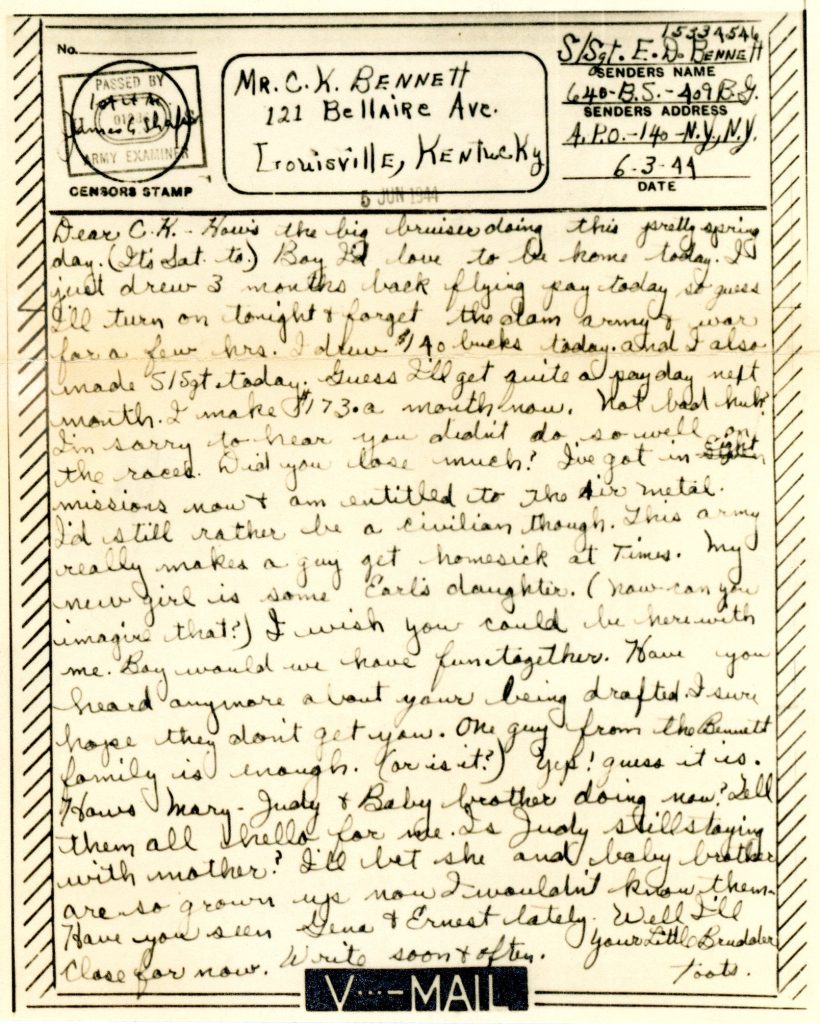 No.
PASSED BY
ARMY EXAMINER
CENSORS STAMP
MR. C. K. BENNETT
121 BELLAIRE AVE.
LOUISVILLE, KENTUCKY
15334546
S/Sgt. E. D. BENNETT
SENDERS NAME
640-B.S.-409 B.G.
SENDERS ADDRESS
A.P.O.-140-N.Y., N.Y.
6-3-44
DATE
5 JUN 1944
Dear C.K. - How's the big bruiser doing this pretty spring
day. (It's Sat. to.) Boy I'd love to be home today. I
just drew 3 months back flying pay today so guess
I'll turn on tonight & forget the dam army & war
for a few hrs. I drew $140 bucks today. and I also
made S/Sgt. today. Guess I'll get quite a payday next
month. I make $173. a month now. Not bad huh?
I'm sorry to hear you didn't do so well on
the races. Did you lose much? I've got in Eight
missions now & am entitled to The Air Metal.
I'd still rather be a civilian though. This army
really makes a guy get homesick at Times. My
new girl is some Earl's daughter. (now can you
imagine that?) I wish you could be here with
me. Boy would we have fun together. Have you
heard anymore about your being drafted. I sure
hope they don't get you. One guy from the Bennett
family is enough. (or is it?) Yep! guess it is.
Hows Mary - Judy & Baby brother doing now? Tell
them all hello for me. Is Judy still staying
with mother? I'll bet she and baby brother
are so grown up now I wouldn't know them.
Have you seen Gena & Ernest lately. Well I'll
Close for now. Write soon & often.
Your Little Brudder
Toots.
V···-MAIL